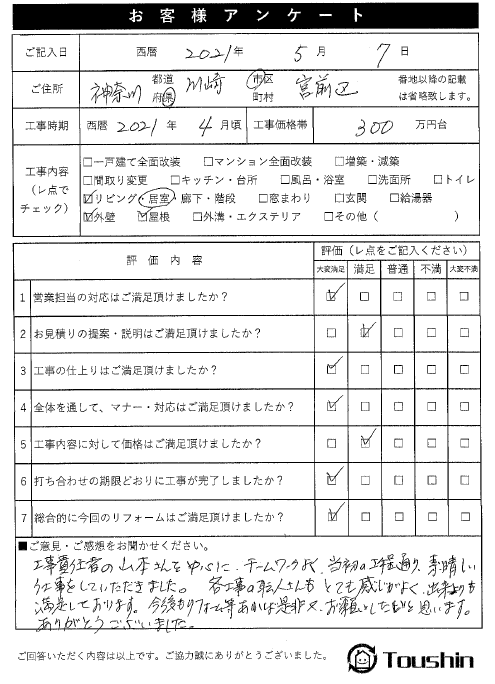 お客様アンケート
ご記入日 西暦 2021年 5月 7日
ご住所 神奈川 都道府県 川崎 市区町村 宮前区 番地以降の記載は省略致します。
工事時期 西暦 2021年 4月頃 工事価格帯 300 万円台
工事内容（レ点でチェック）
□一戸建て全面改装 □マンション全面改装 □増築・減築
□間取り変更 □キッチン・台所 □風呂・浴室 □洗面所 □トイレ
☑リビング・居室・廊下・階段 □窓まわり □玄関 □給湯器
☑外壁 ☑屋根 □外溝・エクステリア □その他（ ）
評価内容 評価（レ点をご記入ください）
大変満足 満足 普通 不満 大変不満
1 営業担当の対応はご満足頂けましたか？ ☑ □ □ □ □
2 お見積りの提案・説明はご満足頂けましたか？ □ ☑ □ □ □
3 工事の仕上りはご満足頂けましたか？ ☑ □ □ □ □
4 全体を通して、マナー・対応はご満足頂けましたか？ ☑ □ □ □ □
5 工事内容に対して価格はご満足頂けましたか？ □ ☑ □ □ □
6 打ち合わせの期限どおりに工事が完了しましたか？ ☑ □ □ □ □
7 総合的に今回のリフォームはご満足頂けましたか？ ☑ □ □ □ □
■ご意見・ご感想をお聞かせください。
工事責任者の山本さんを中心に、チームワークよく、当初の工程通り、素晴しい
工事をしていただきました。 各工事の職人さんもとても感じがよく、出来よりも
満足しております。今後もリフォーム等あれば是非又、お願いしたいと思います。
ありがとうございました。
ご回答いただく内容は以上です。ご協力誠にありがとうございました。
Toushin